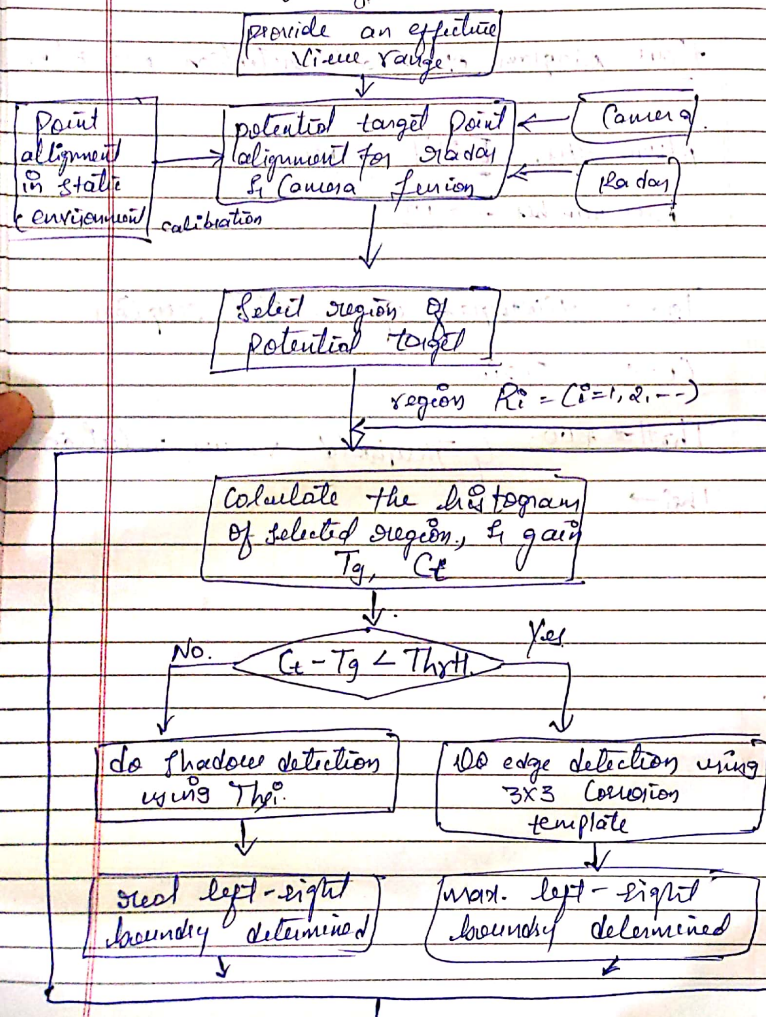 provide an effective
view range.
Point
allignment
in static
environment
potential target point
alignment for radar
& Camera fusion
Camera
Radar
calibration
Select region of
potential target
region Ri = (i=1, 2, --)
Calculate the histogram
of selected region, & gain
Tg, Ct
No.
Ct - Tg < ThrH.
Yes
do shadow detection
using Thsi.
Do edge detection using
3x3 Corrosion
template
real left-right
boundry determined
max. left-right
boundry determined